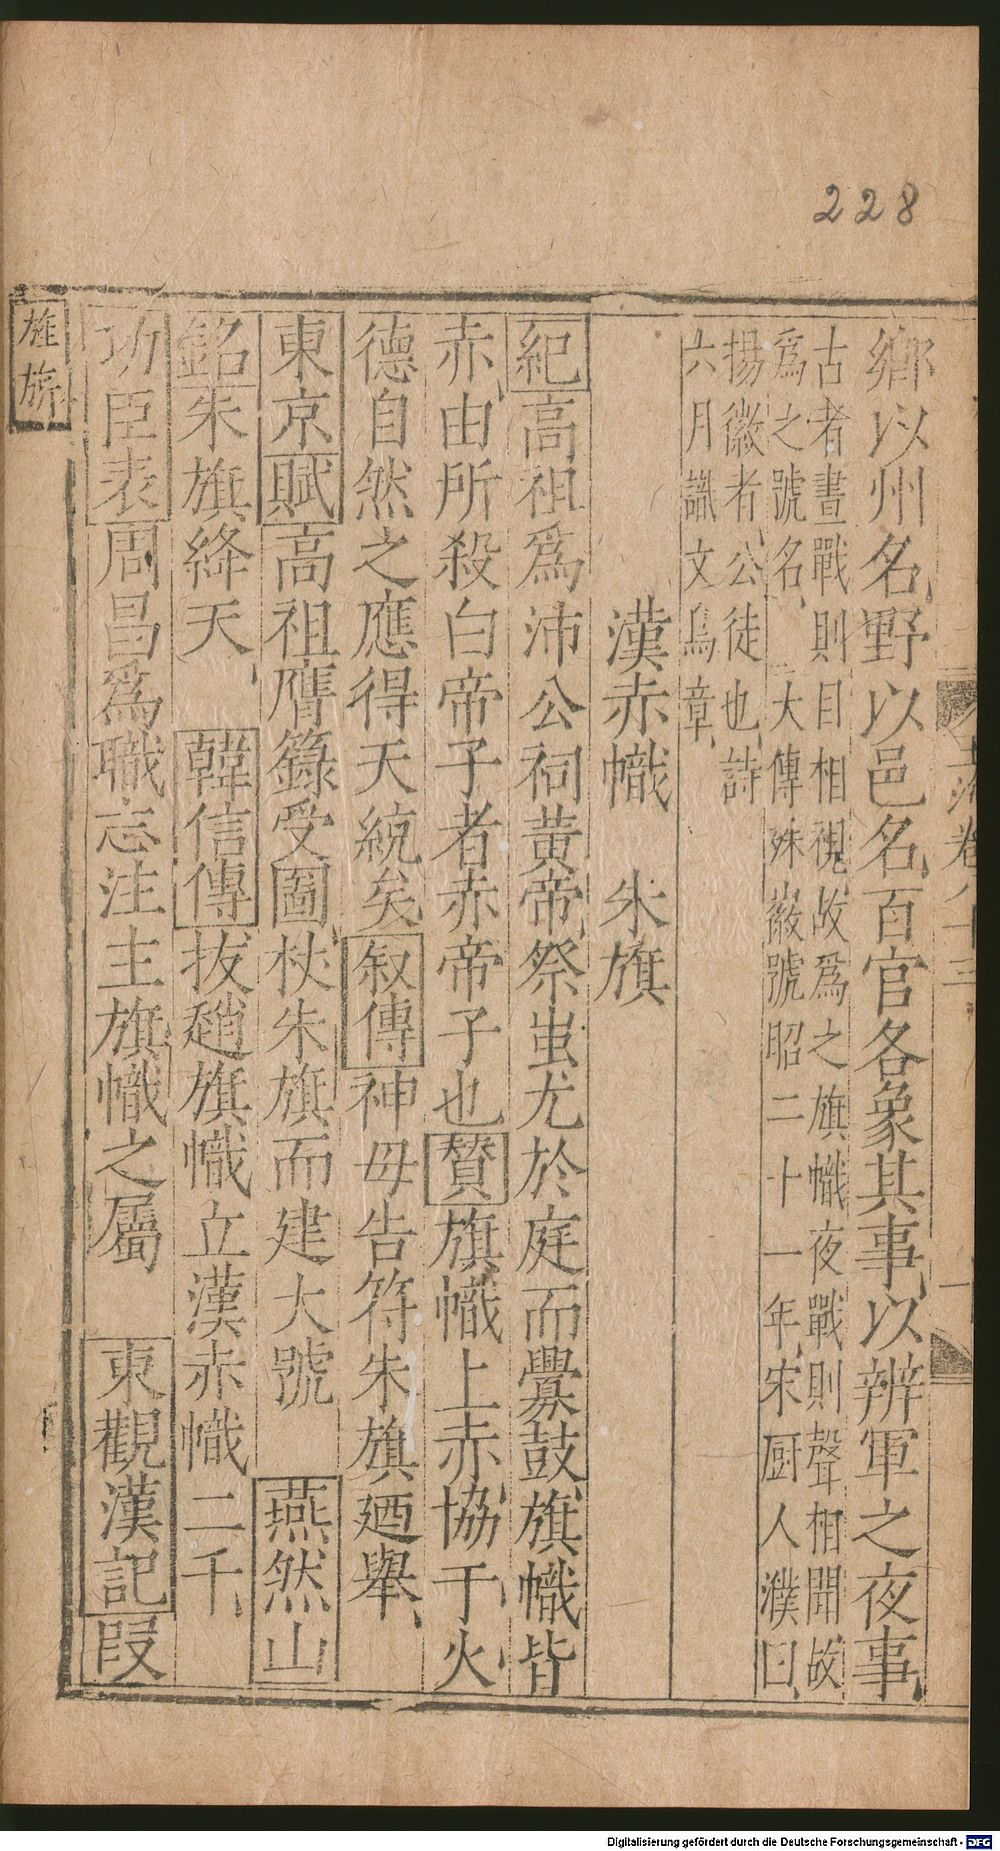 228
鄉以州名、野以邑名、百官各象其事、以辨軍之夜事、
古者晝戰則目相視、故爲之旗幟、夜戰則聲相聞、故
爲之號名、 大傳殊徽號昭二十一年、宋厨人濮曰、
揚徽者、公徒也、詩
六月識文鳥章、
漢赤幟 朱旗
紀高祖爲沛公祠黃帝、祭蚩尤於庭而釁鼓、旗幟皆
赤、由所殺白帝子者赤帝子也贊旗幟上赤、協于火
德自然之應得天統矣、叙傳神母告符朱旗廼舉、
東京賦高祖膺籙受圖杖朱旗而建大號 燕然山
銘朱旗絳天、 韓信傳拔趙旗幟立漢赤幟二千、
功臣表周昌爲職志注主旗幟之屬 東觀漢記段
旌旂
卷八十三
一
Digitalisierung gefördert durch die Deutsche Forschungsgemeinschaft - DFG